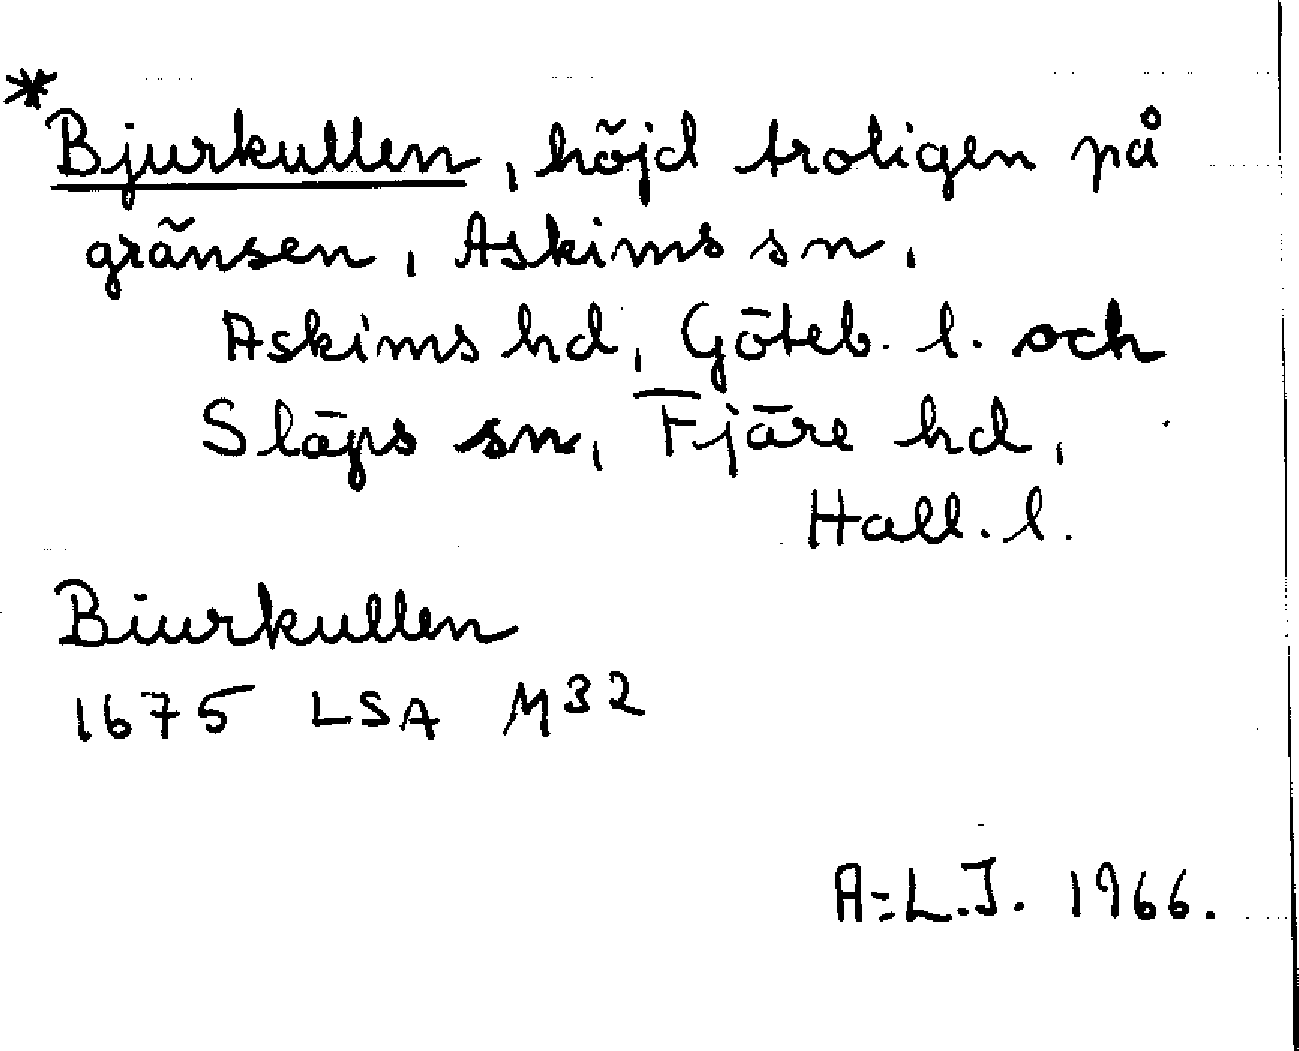 *Bjurkullen, höjd troligen på
gränsen, Askims sn,
Askims hd, Göteb. l. och
Släps sn, Fjäre hd,
Hall. l.
Biurkullen
1675 LSA M32
A-L.J. 1966.